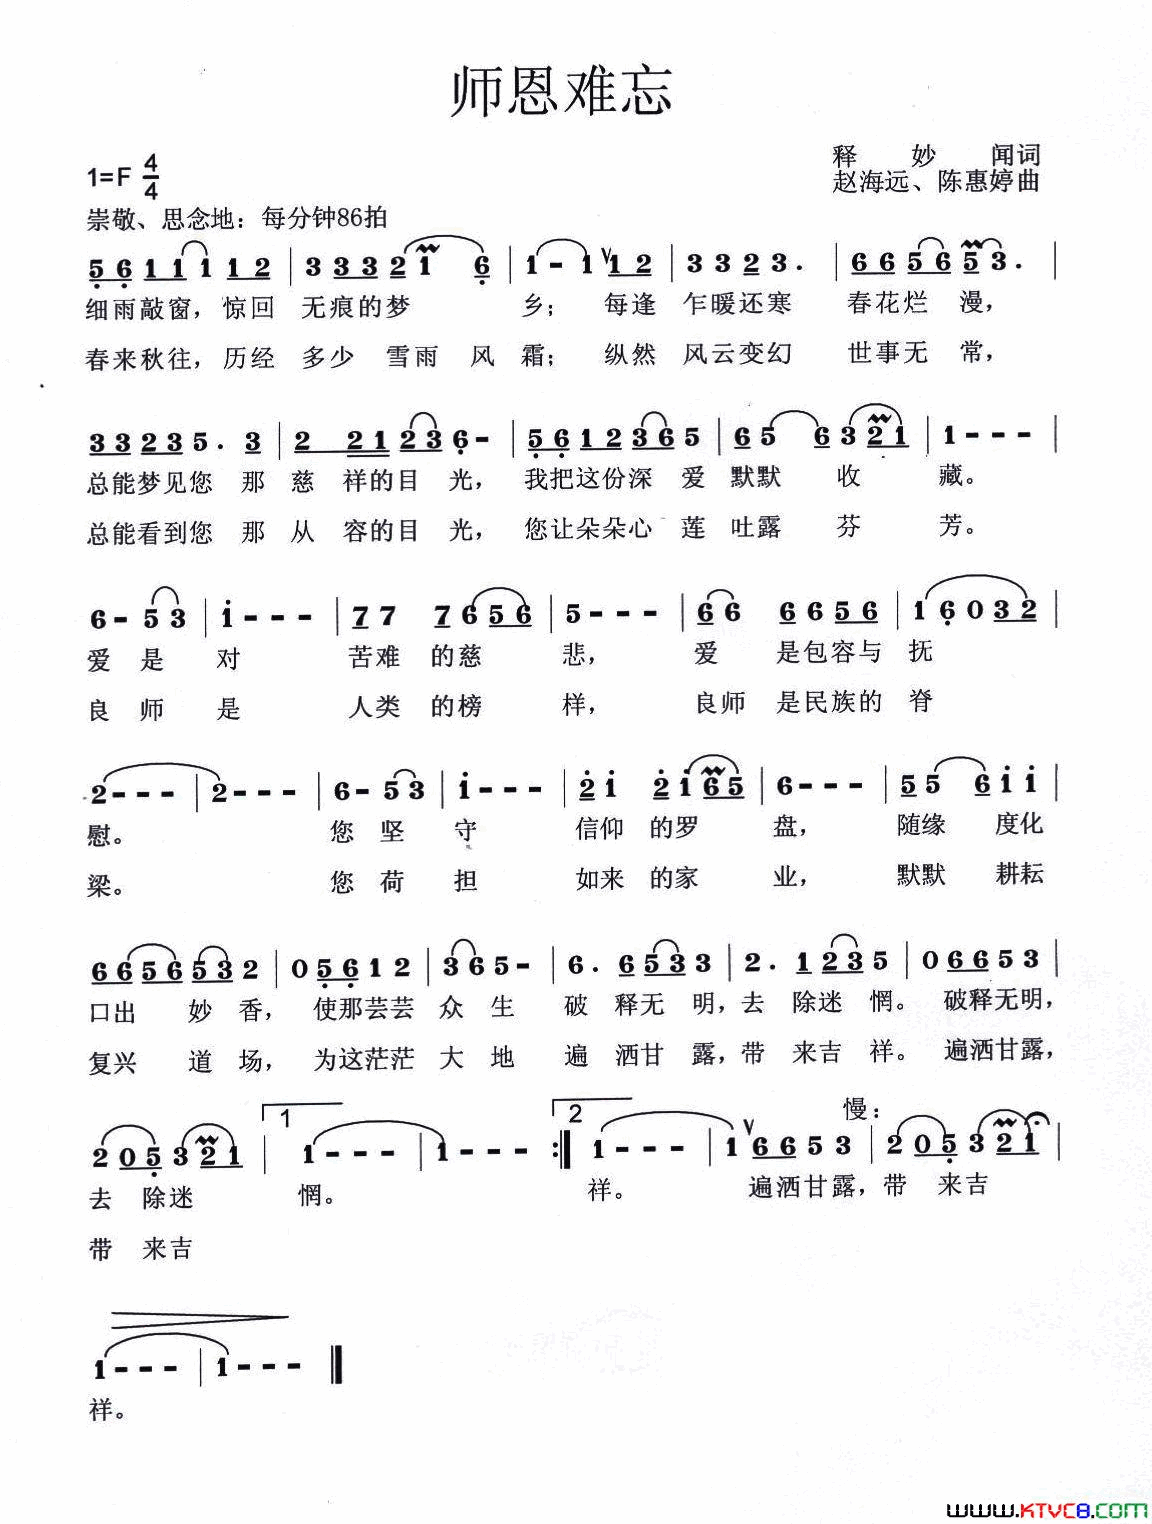 师恩难忘
1=F 4/4
释妙闻词
赵海远、陈惠婷曲
崇敬、思念地：每分钟86拍
5 6 1 1 1 1 2 | 3 3 3 2 1 6 | 1 - 1 1 2 | 3 3 2 3 . | 6 6 5 6 5 3 . |
细雨敲窗，惊回 无痕的梦 乡；每逢 乍暖还寒 春花烂 漫，
春来秋往，历经 多少 雪雨 风 霜；纵然 风云变幻 世事无 常，
3 3 2 3 5 . 3 | 2 2 1 2 3 6 - | 5 6 1 2 3 6 5 | 6 5 6 3 2 1 | 1 - - - |
总能梦见您 那 慈 祥的目 光，我把这份深 爱 默默 收 藏。
总能看到您 那 从 容的目 光，您让朵朵心 莲 吐露 芬 芳。
6 - 5 3 | 1 - - - | 7 7 7 6 5 6 | 5 - - - | 6 6 6 6 5 6 | 1 6 0 3 2 |
爱 是 对 苦难 的慈 悲，爱 是包容与 抚
良 师 是 人类 的榜 样，良师 是民族的 脊
2 - - - | 2 - - - | 6 - 5 3 | 1 - - - | 2 1 2 1 6 5 | 6 - - - | 5 5 6 1 1 |
慰。 您 坚 守 信仰 的罗 盘，随缘 度化
梁。 您 荷 担 如来 的家 业，默默 耕耘
6 6 5 6 5 3 2 | 0 5 6 1 2 | 3 6 5 - | 6 . 6 5 3 3 | 2 . 1 2 3 5 | 0 6 6 5 3 |
口出 妙 香，使那芸芸 众 生 破 释无 明，去 除迷 惘。破释无明，
复兴 道 场，为这茫茫 大 地 遍 洒甘 露，带 来吉 祥。遍洒甘露，
慢：
2 0 5 3 2 1 | 1 1 - - - | 1 - - - :| 2 1 - - - | 1 6 6 5 3 | 2 0 5 3 2 1 |
去 除迷 惘。 祥。 遍洒甘露，带 来吉
带 来吉
1 - - - | 1 - - -
祥。
WWW.KTVC8.COM